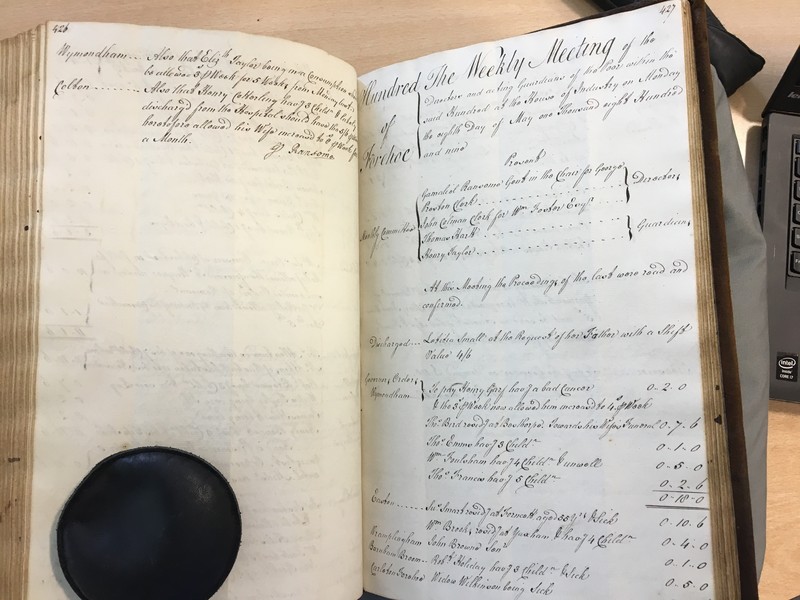 426
Wymondham Also that Eliz.th Taylor being in a Consumption
be allowed 5s/ P Week for 5 Weeks from
Colton Also that Henry Catterling hav.g 5 Child.n
discharged from the Hospital should have the
heretofore allowed his Wife increased to P Week for
a Month.
G Ransome
427
Hundred of Forehoe
The Weekly Meeting of the
Directors and acting Guardians of the Poor within the
said Hundred at the House of Industry on Monday
the eighth Day of May one Thousand eight Hundred
and nine
Present
Weekly Committee
Gamaliel Ransome Gent in the Chair for George
Preston Clerk
John Colman Clerk for Wm Foster Esqr
Directors
Thomas Hart
Henry Taylor
Guardians
At this Meeting the Proceedings of the last were read and
confirmed.
Discharged Letitia Small at the Request of her Father with a Shift
Value 4/6
Governors Orders
Wymondham To pay Henry Gay hav.g a bad Cancer 0-2-0
& the 3s/ P Week now allowed him increased to 4s/ P Week
Thos. Bird resid.g at Besthorpe Towards his Wifes Funeral 0-7-6
Thos. Emms hav.g 3 Child.n 0-1-0
Wm. Foulsham hav.g 4 Child.n & unwell 0-5-0
Thos. Frances hav.g 5 Child.n 0-2-6
0-18-0
Easton Su. Smart resid.g at Forncett aged 55 Y.rs & Sick 0-10-6
Wm. Brock resid.g at Yaxham & hav.g 4 Child.n 0-4-0
Wramplingham John Browne Sen.r 0-1-0
Barnham Broom Rob.t Holiday hav.g 3 Child.n & Sick
Carleton Forehoe Widow Wilkinson being Sick 0-5-0
intel
inside
CORE i7